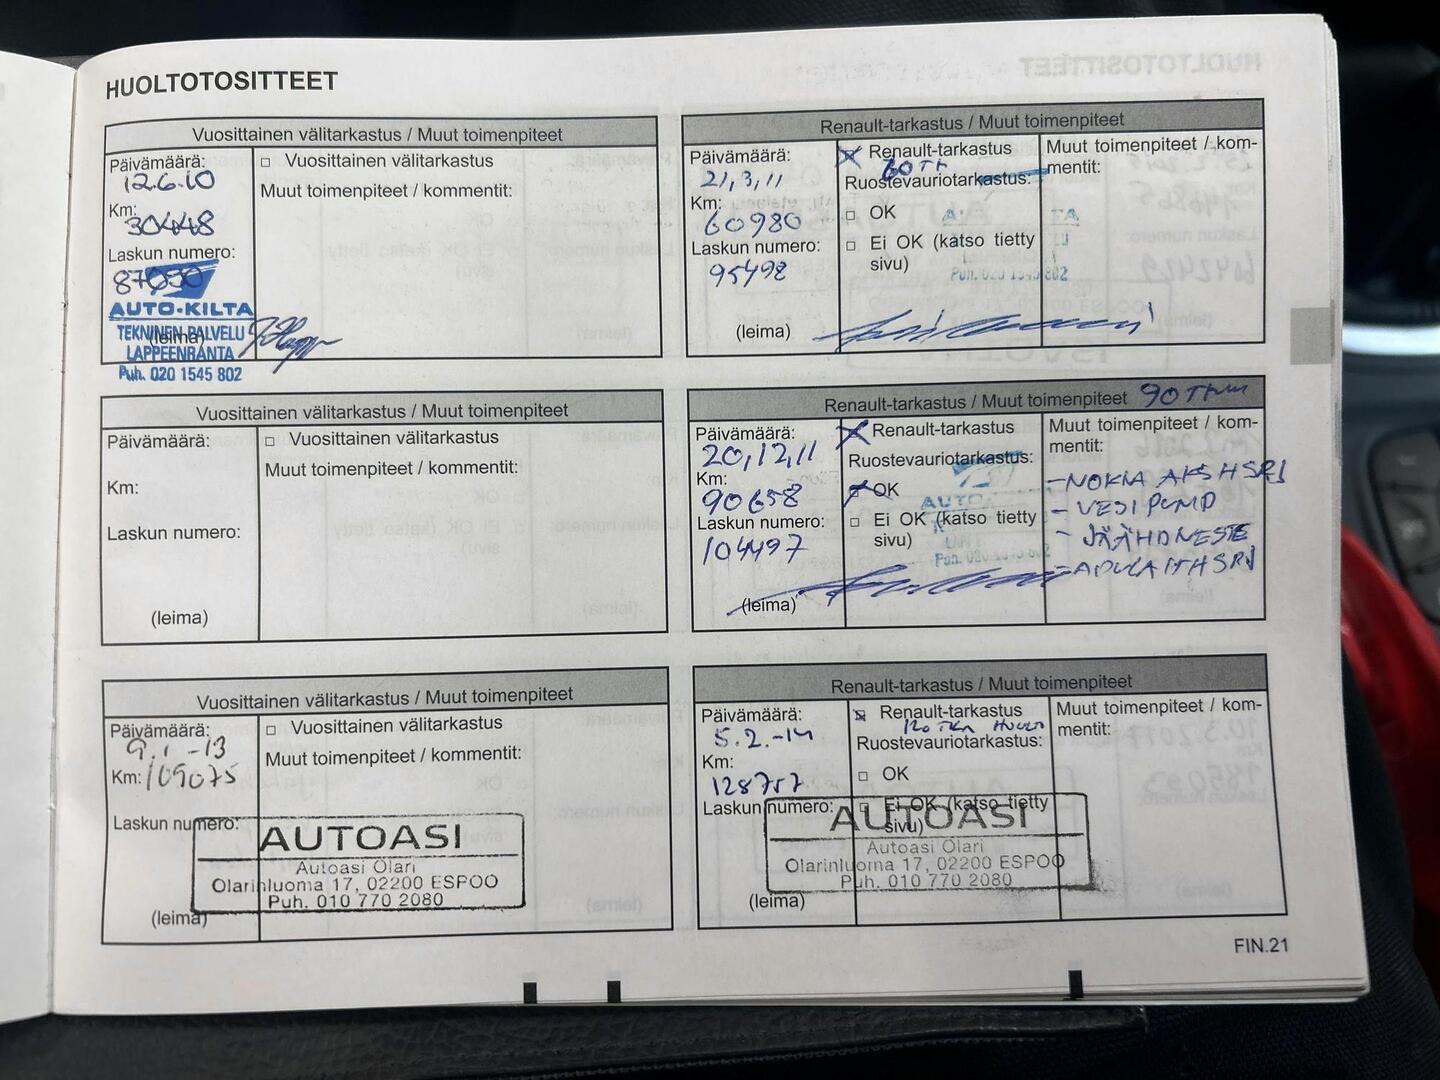 HUOLTOTOSITTEET
Vuosittainen välitarkastus / Muut toimenpiteet
Päivämäärä:
12.6.10
Km:
30448
Laskun numero:
87050
AUTO-KILTA
TEKNINEN PALVELU
(leima)
LAPPEENRANTA
Puh. 020 1545 802
□ Vuosittainen välitarkastus
Muut toimenpiteet / kommentit:
Renault-tarkastus / Muut toimenpiteet
Päivämäärä:
21,3,11
Km:
60980
Laskun numero:
95498
(leima)
Renault-tarkastus
60 TKm
Ruostevauriotarkastus:
□ OK
□ Ei OK (katso tietty
sivu)
Puh. 020 1545 802
Muut toimenpiteet / kom-
mentit:
Vuosittainen välitarkastus / Muut toimenpiteet
Päivämäärä:
Km:
Laskun numero:
(leima)
□ Vuosittainen välitarkastus
Muut toimenpiteet / kommentit:
Renault-tarkastus / Muut toimenpiteet 90 TKm
Päivämäärä:
20,12,11
Km:
90658
Laskun numero:
104497
(leima)
Renault-tarkastus
Ruostevauriotarkastus:
OK
AUTO
□ Ei OK (katso tietty
sivu)
Puh. 020 1545 802
Muut toimenpiteet / kom-
mentit:
- VESIPUMP
- JÄÄHDNESTE
Vuosittainen välitarkastus / Muut toimenpiteet
Päivämäärä:
9.1-13
Km: 109075
Laskun numero:
(leima)
□ Vuosittainen välitarkastus
Muut toimenpiteet / kommentit:
AUTOASI
Autoasi Olari
Olarinluoma 17, 02200 ESPOO
Puh. 010 770 2080
Renault-tarkastus / Muut toimenpiteet
Päivämäärä:
5.2.-14
Km:
128757
Laskun numero:
(leima)
Renault-tarkastus
120 TKm HUOLTO
Ruostevauriotarkastus:
□ OK
□ Ei OK (katso tietty
sivu)
AUTOASI
Autoasi Olari
Olarinluoma 17, 02200 ESPOO
Puh. 010 770 2080
Muut toimenpiteet / kom-
mentit:
FIN.21